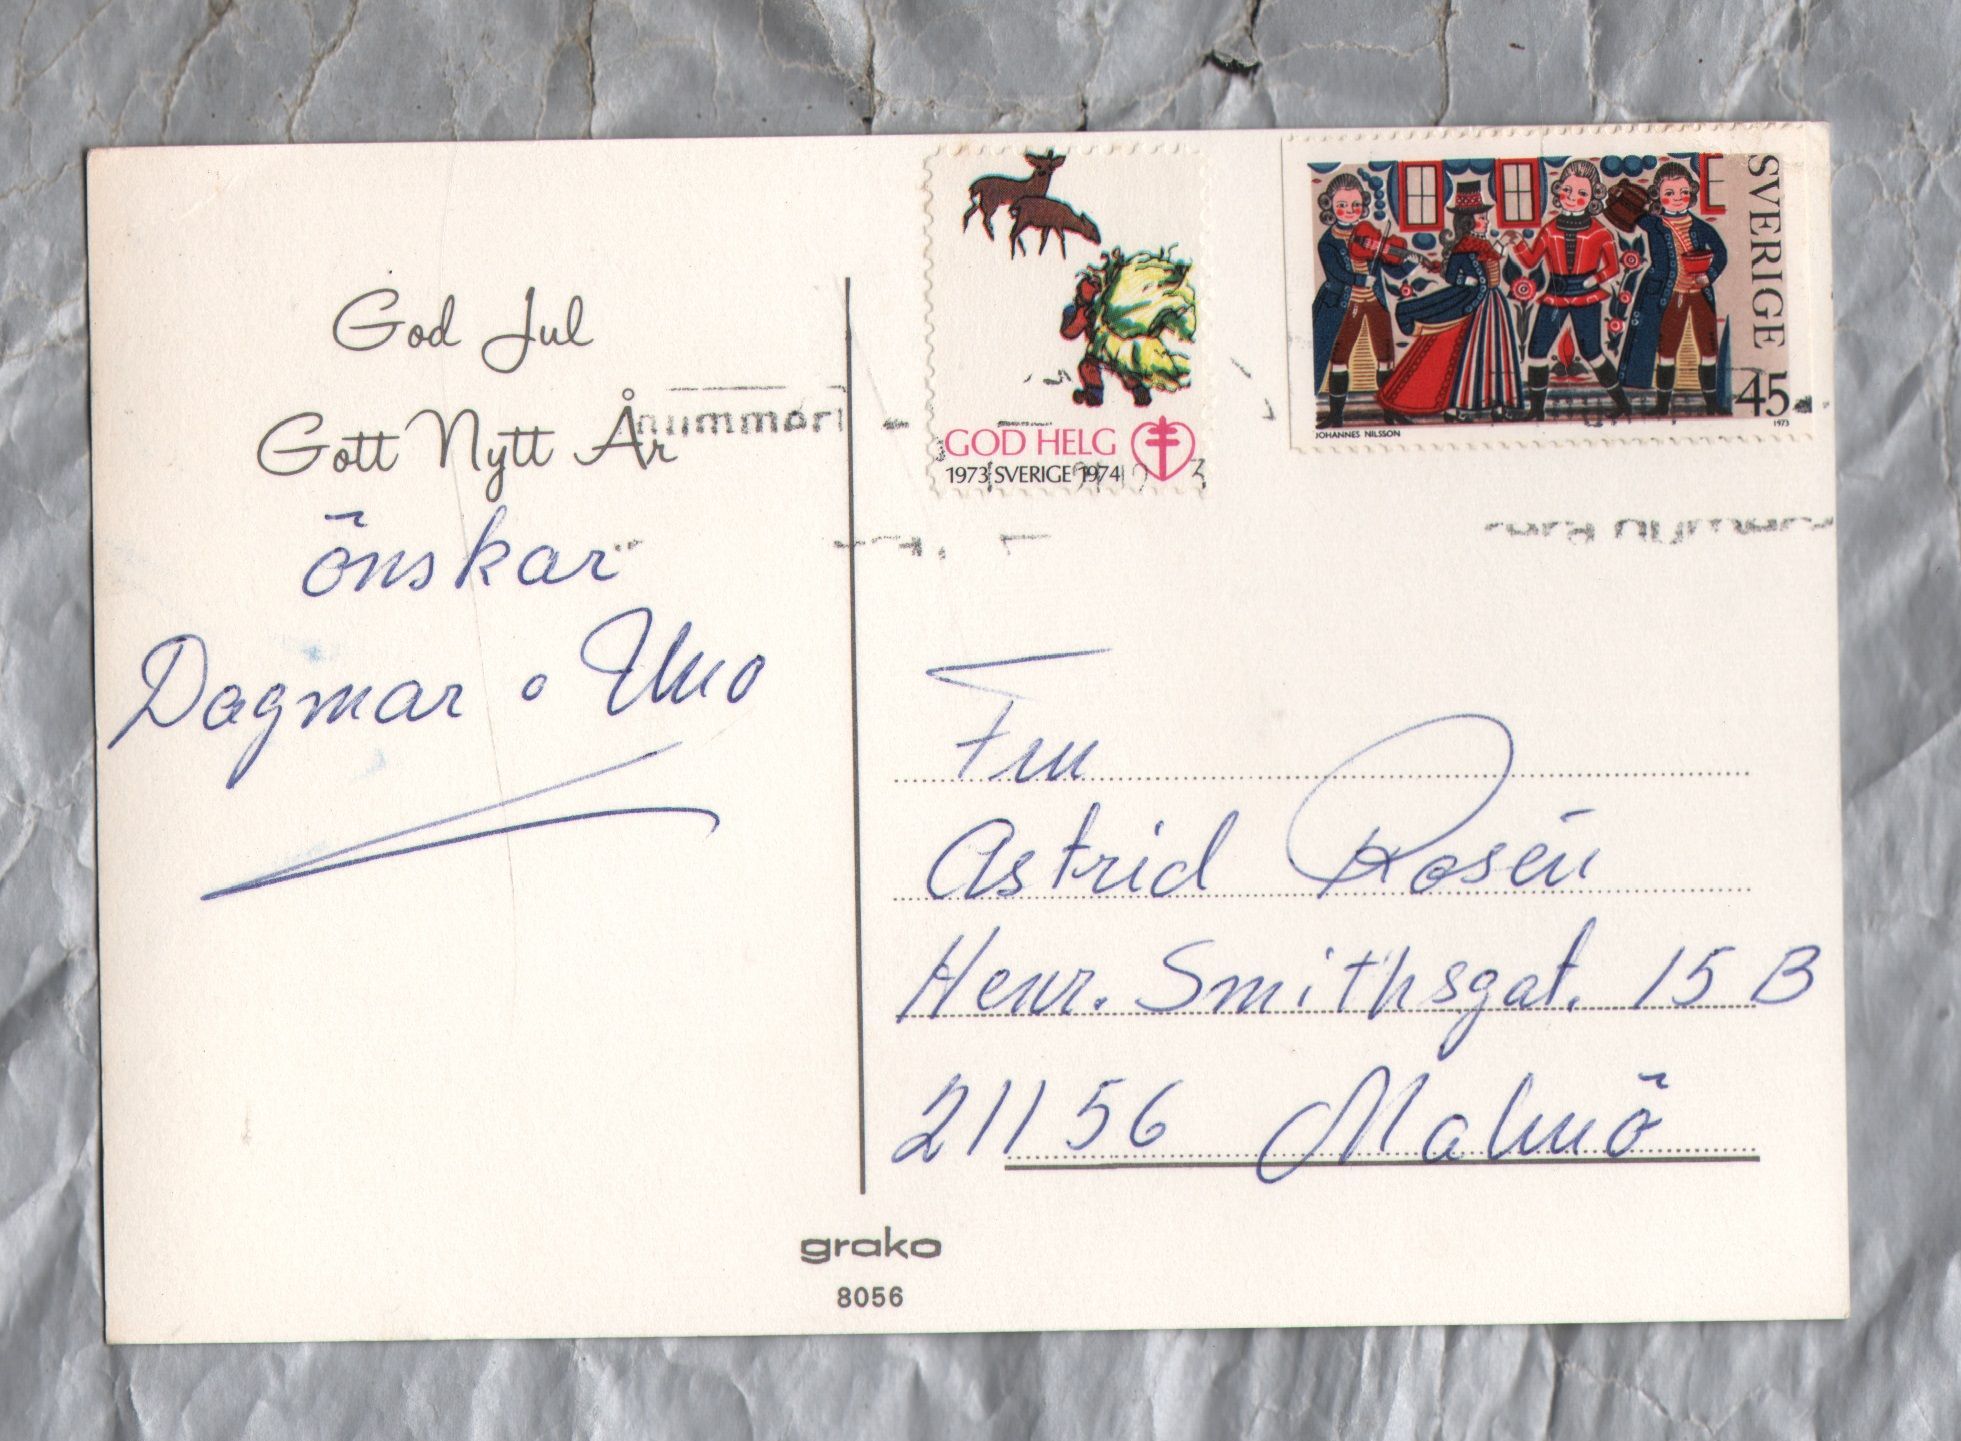 God Jul
Gott Nytt År
önskar
Dagmar o Uno
nummer
GOD HELG
1973 SVERIGE 1974
SVERIGE 45
JOHANNES NILSSON
1973
Fru
Astrid Rosén
Henr. Smithsgat. 15 B
21156 Malmö
grako
8056